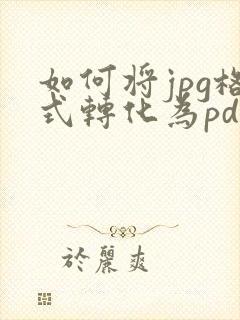 如何将jpg格
式轉化為pd
於麗爽